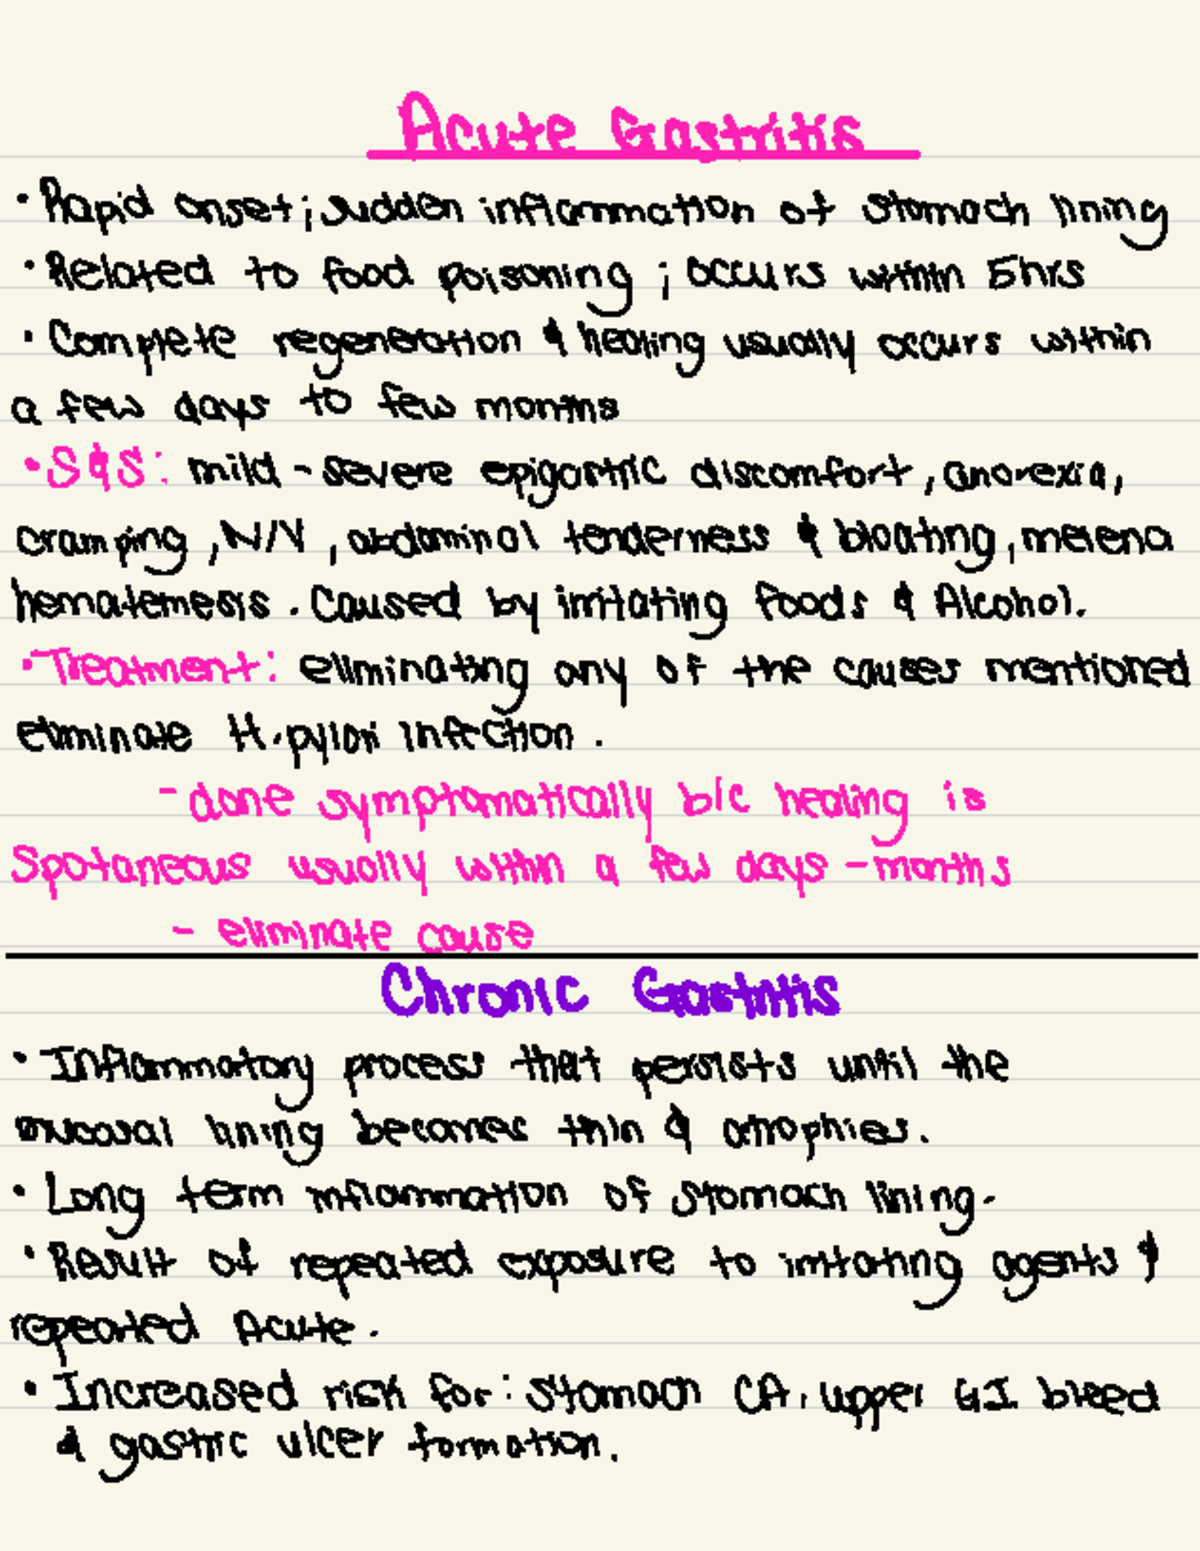 Acute Gastritis
• Rapid onset; sudden inflammation of stomach lining
• Related to food poisoning ; occurs within 5hrs
• Complete regeneration & healing usually occurs within
a few days to few months
• S&S: mild - severe epigastric discomfort, anorexia,
cramping, N/V, abdominal tenderness & bloating, melena
hematemesis. Caused by irritating foods & Alcohol.
• Treatment: eliminating any of the causes mentioned
eliminate H. pylori infection.
- done symptomatically b/c healing is
Spotaneous usually within a few days - months
- eliminate cause
Chronic Gastritis
• Inflammatory process that persists until the
mucosal lining becomes thin & atrophies.
• Long term inflammation of stomach lining.
• Result of repeated exposure to irritating agents &
repeated Acute.
• Increased risk for: stomach CA, upper GI bleed
& gastric ulcer formation.